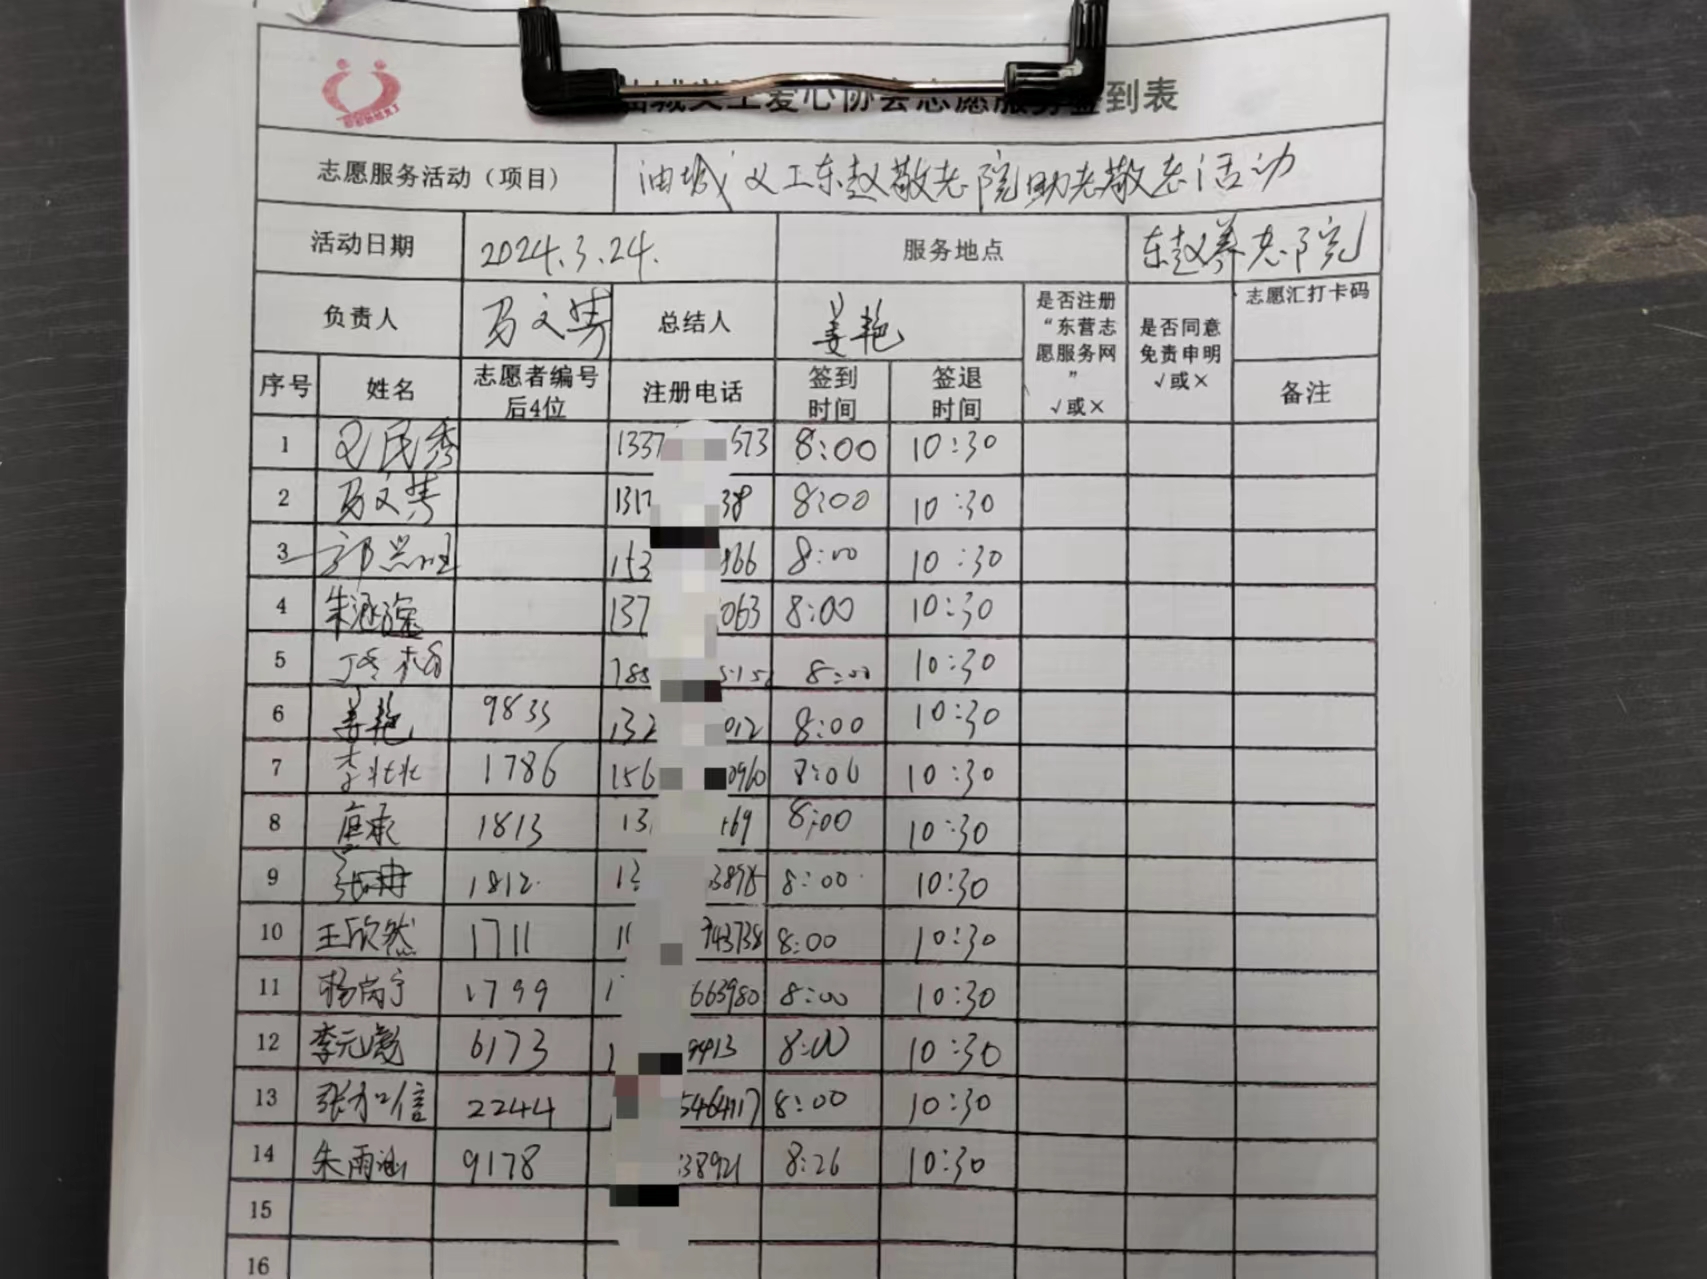 油城义工爱心协会志愿服务签到表
志愿服务活动（项目） 油城义工东赵敬老院助老敬老活动
活动日期 2024.3.24. 服务地点 东赵养老院
负责人 马文芳 总结人 姜艳 是否注册“东营志愿服务网” √或× 是否同意免责申明 √或× 志愿汇打卡码
序号 姓名 志愿者编号后4位 注册电话 签到时间 签退时间 备注
1 民秀 1337 573 8:00 10:30
2 马文芳 1317 38 8:00 10:30
3 郭 153 866 8:00 10:30
4 朱 137 063 8:00 10:30
5 188 8:00 10:30
6 姜艳 9835 132 012 8:00 10:30
7 李壮壮 1786 156 0960 8:00 10:30
8 1813 13 69 8:00 10:30
9 张冉 1812 13 3898 8:00 10:30
10 王欣然 1711 1 743738 8:00 10:30
11 杨尚宁 1799 1 663980 8:00 10:30
12 李元 6173 1 9413 8:00 10:30
13 张加信 2244 5464117 8:00 10:30
14 朱雨涵 9178 38921 8:26 10:30
15
16